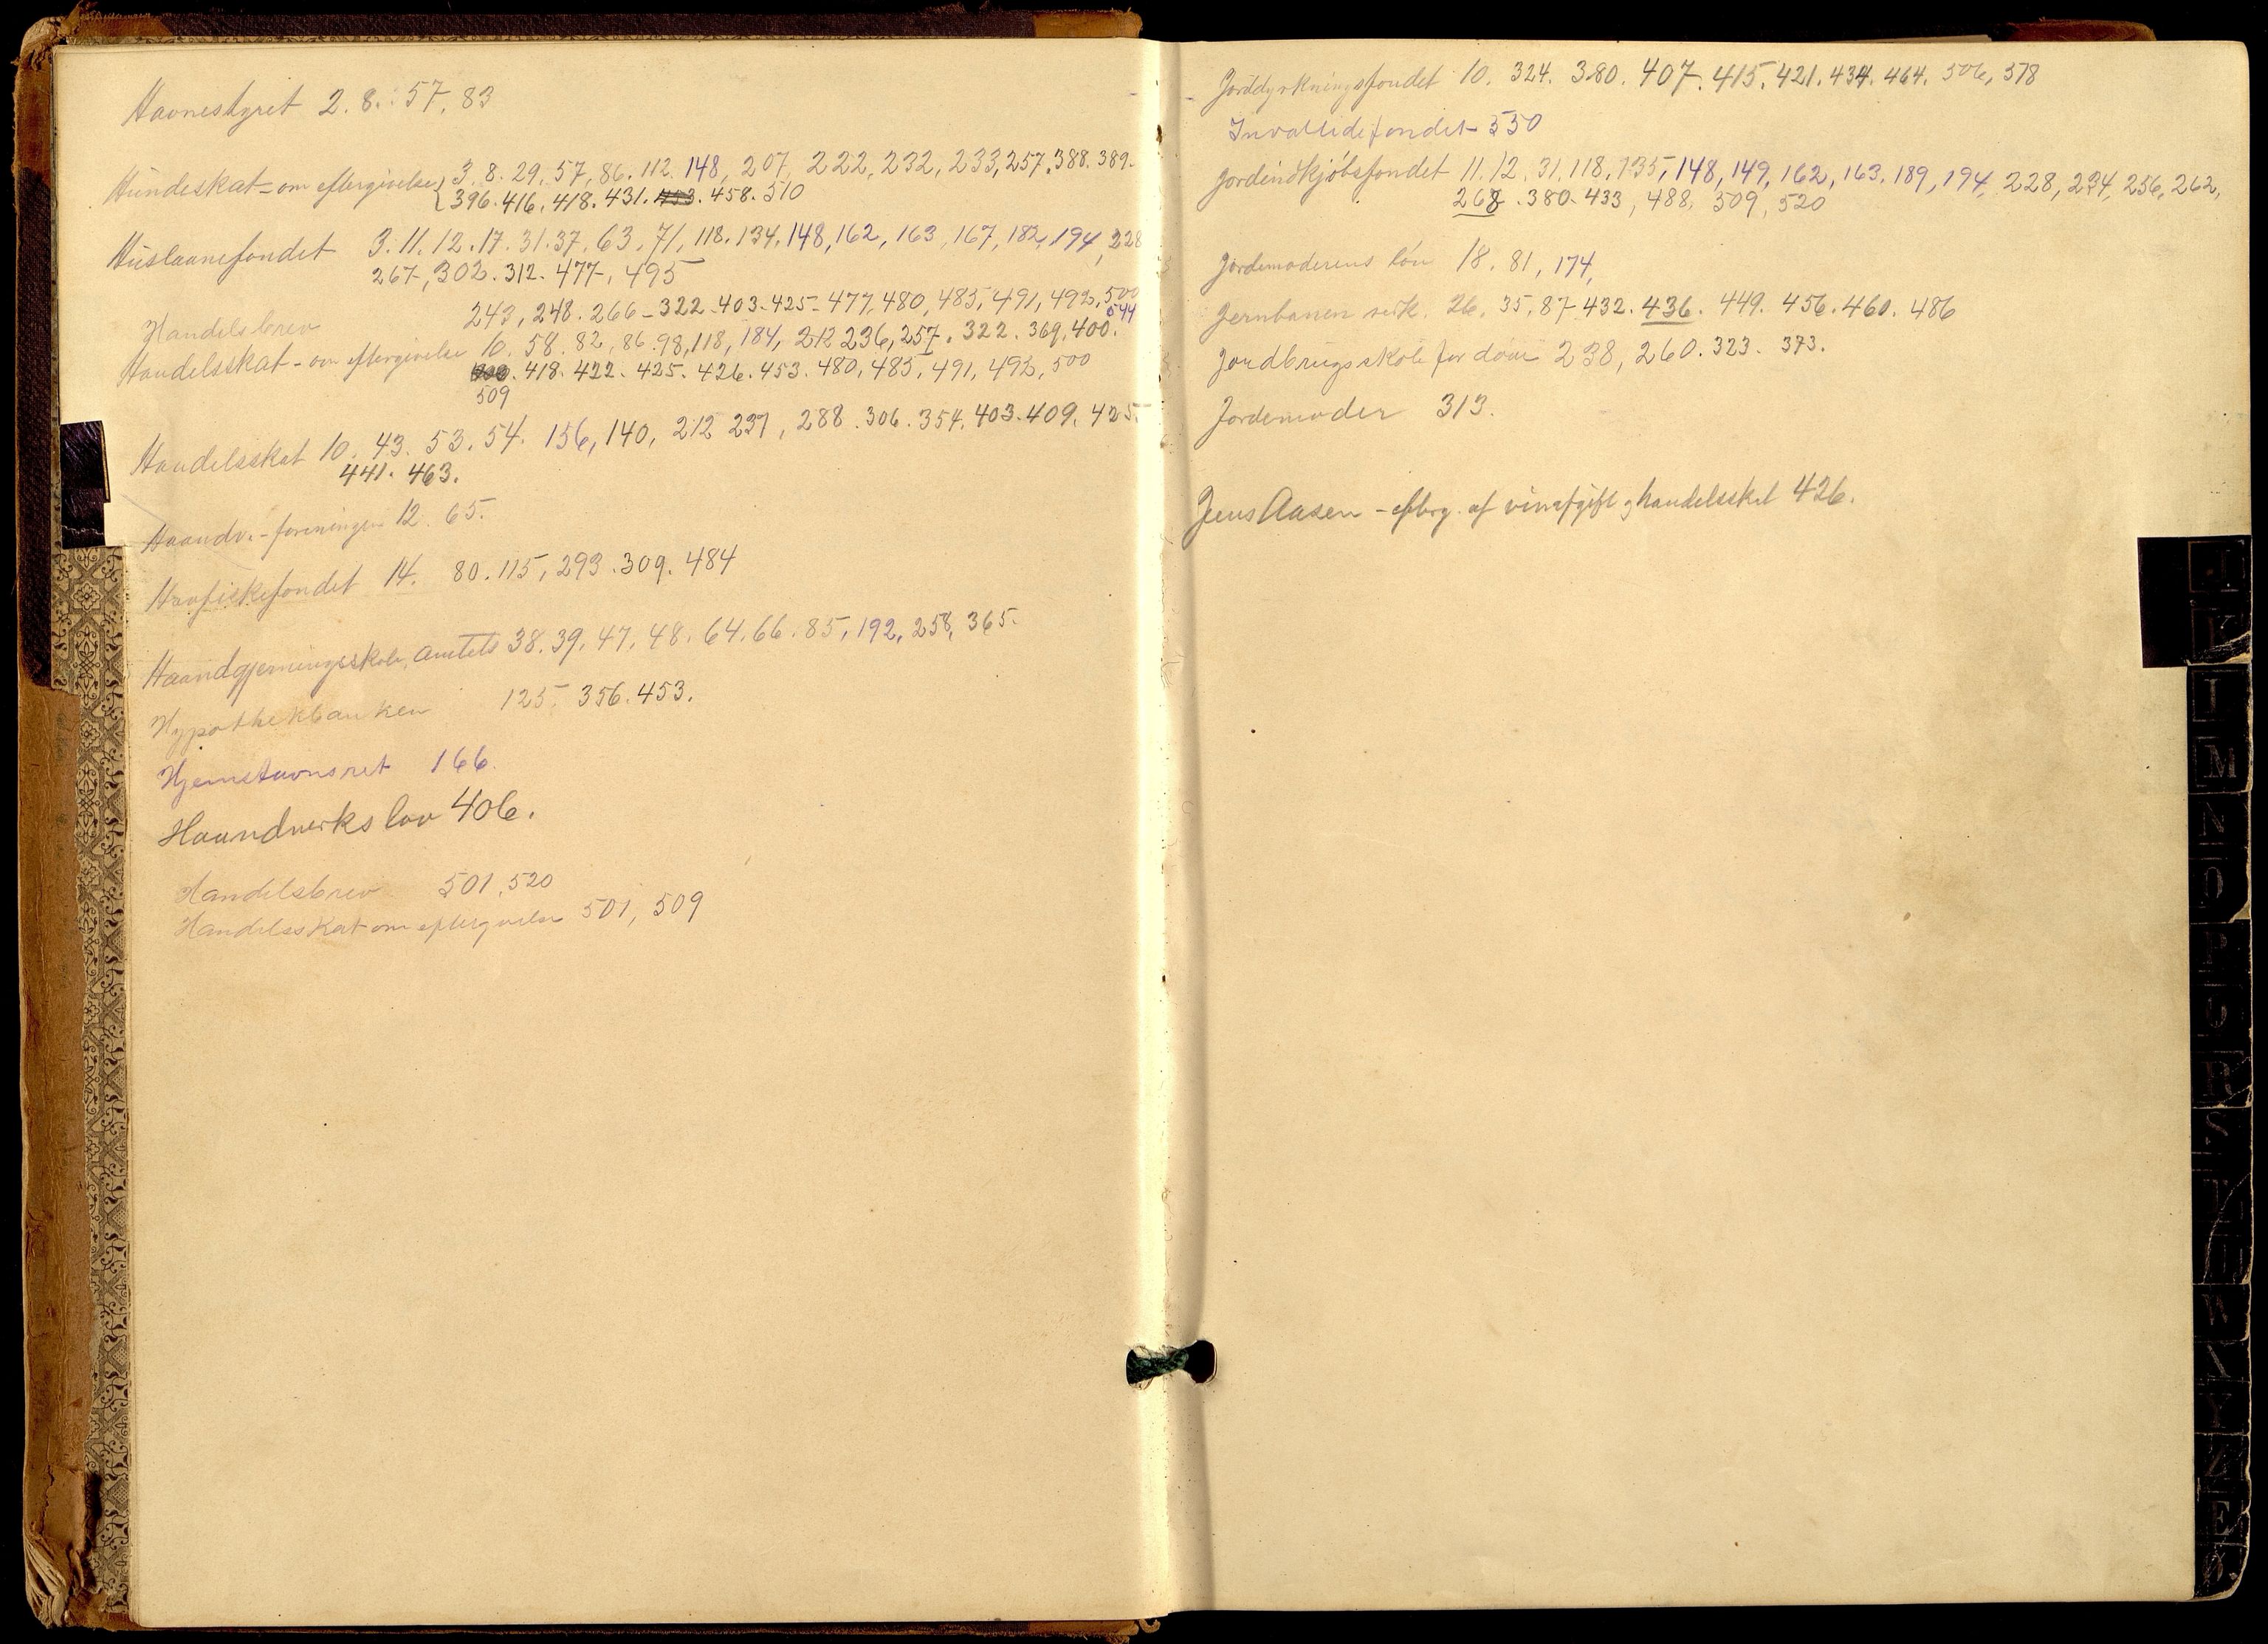 Havnestyret 2. 8. 57, 83
Hundeskat - om eftergivelse 3. 8. 29. 57, 86. 112. 148, 207, 222, 232, 233, 257. 388. 389.
396. 416. 418. 431. 453. 458. 510
Huslaanefondet 3. 11. 12. 17. 31. 37. 63. 71, 118. 134, 148, 162, 163, 167, 182, 194, 228
267, 302. 312. 477, 495
Handelsbrev 243, 248. 266 - 322 - 403 - 425 - 477, 480, 485, 491, 492, 500
544
Handelsskat - om eftergivelse 10. 58. 82, 86. 98, 118, 184, 212 236, 257. 322. 369. 400.
418. 422. 425. 426. 453. 480, 485, 491, 492, 500
509
Handelsskat 10. 43. 53. 54. 156, 140, 212 237, 288. 306. 354. 403. 409. 425.
441. 463.
Haandv. - foreningen 12. 65.
Havfiskefondet 14. 80. 115, 293. 309. 484
Haandgjerningsskole, amtets 38. 39. 47. 48. 64. 66. 85, 192, 258, 365.
Hypothekbanken 125. 356. 453.
Hjemstavnsret 166.
Haandverkslov 406.
Handelsbrev 501, 520
Handelsskat om eftergivelse 501, 509
Jorddyrkningsfondet 10. 324. 380. 407. 415. 421. 434. 464. 506, 578
Invallidefondet 550
Jordindkjøbsfondet 11. 12. 31. 118, 135, 148, 149, 162, 163. 189, 194, 228, 234, 256, 262,
268. 380. 433, 488, 509, 520
Jordemoderens løn 18. 81, 174,
Jernbanen 26. 35, 87 - 432. 436. 449. 456. 460. 486
Jordbrugsskole for døve 238, 260. 323. 373.
Jordemoder 313.
Jens Aasen - efterg. af vinafgift og handelsskat 426.
J
K
L
M
N
O
P
Q
R
S
T
U
V
X
Y
Z
Æ
Ø